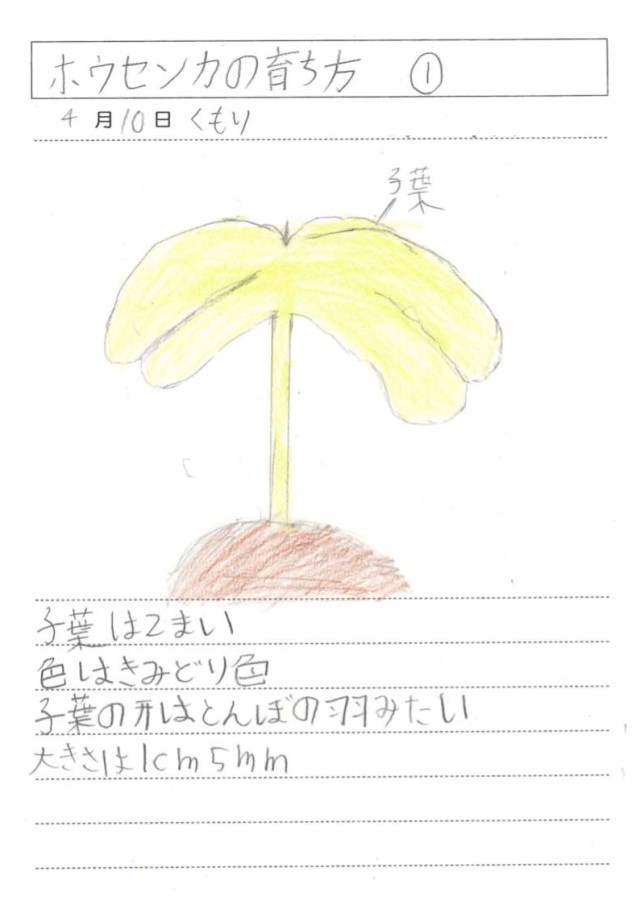 ホウセンカの育ち方 ①
4月10日 くもり
子葉
子葉は2まい
色はきみどり色
子葉の形はとんぼの羽みたい
大きさは1cm5mm